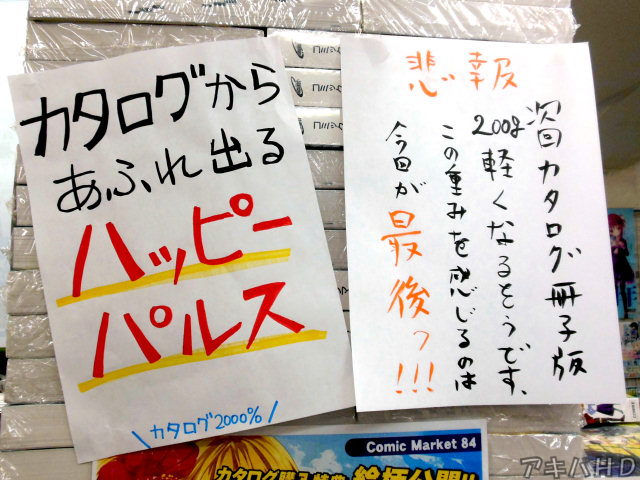 カタログから
あふれ出る
ハッピー
パルス
\カタログ2000%/
悲報
次回カタログ冊子版
200g軽くなるそうです、
この重みを感じるのは
今回が最後っ!!!
Comic Market 84
カタログ購入特典 絵柄公開!!
アキバHD